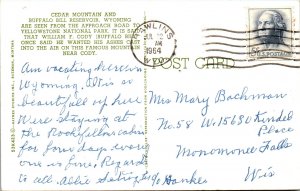 CEDAR MOUNTAIN AND
BUFFALO BILL RESERVOIR, WYOMING
ARE SEEN FROM THE APPROACH ROAD TO
YELLOWSTONE NATIONAL PARK. IT IS SAID
THAT WILLIAM F. CODY (BUFFALO BILL)
ONCE SAID HE WANTED HIS ASHES CAST
INTO THE AIR ON THIS FAMOUS MOUNTAIN
NEAR CODY.
RAWLINS
AM
1964
WYO
POST CARD
Am vacationing here in
Wyoming. It is so
beautiful up here
Were staying at
the Rockefellers cabin
for four days every
one is fine. Regards
to all. Allie
Mrs Mary Bachman
No. 58 W. 15650 Kindel
Place
Monomonee Falls
Wis